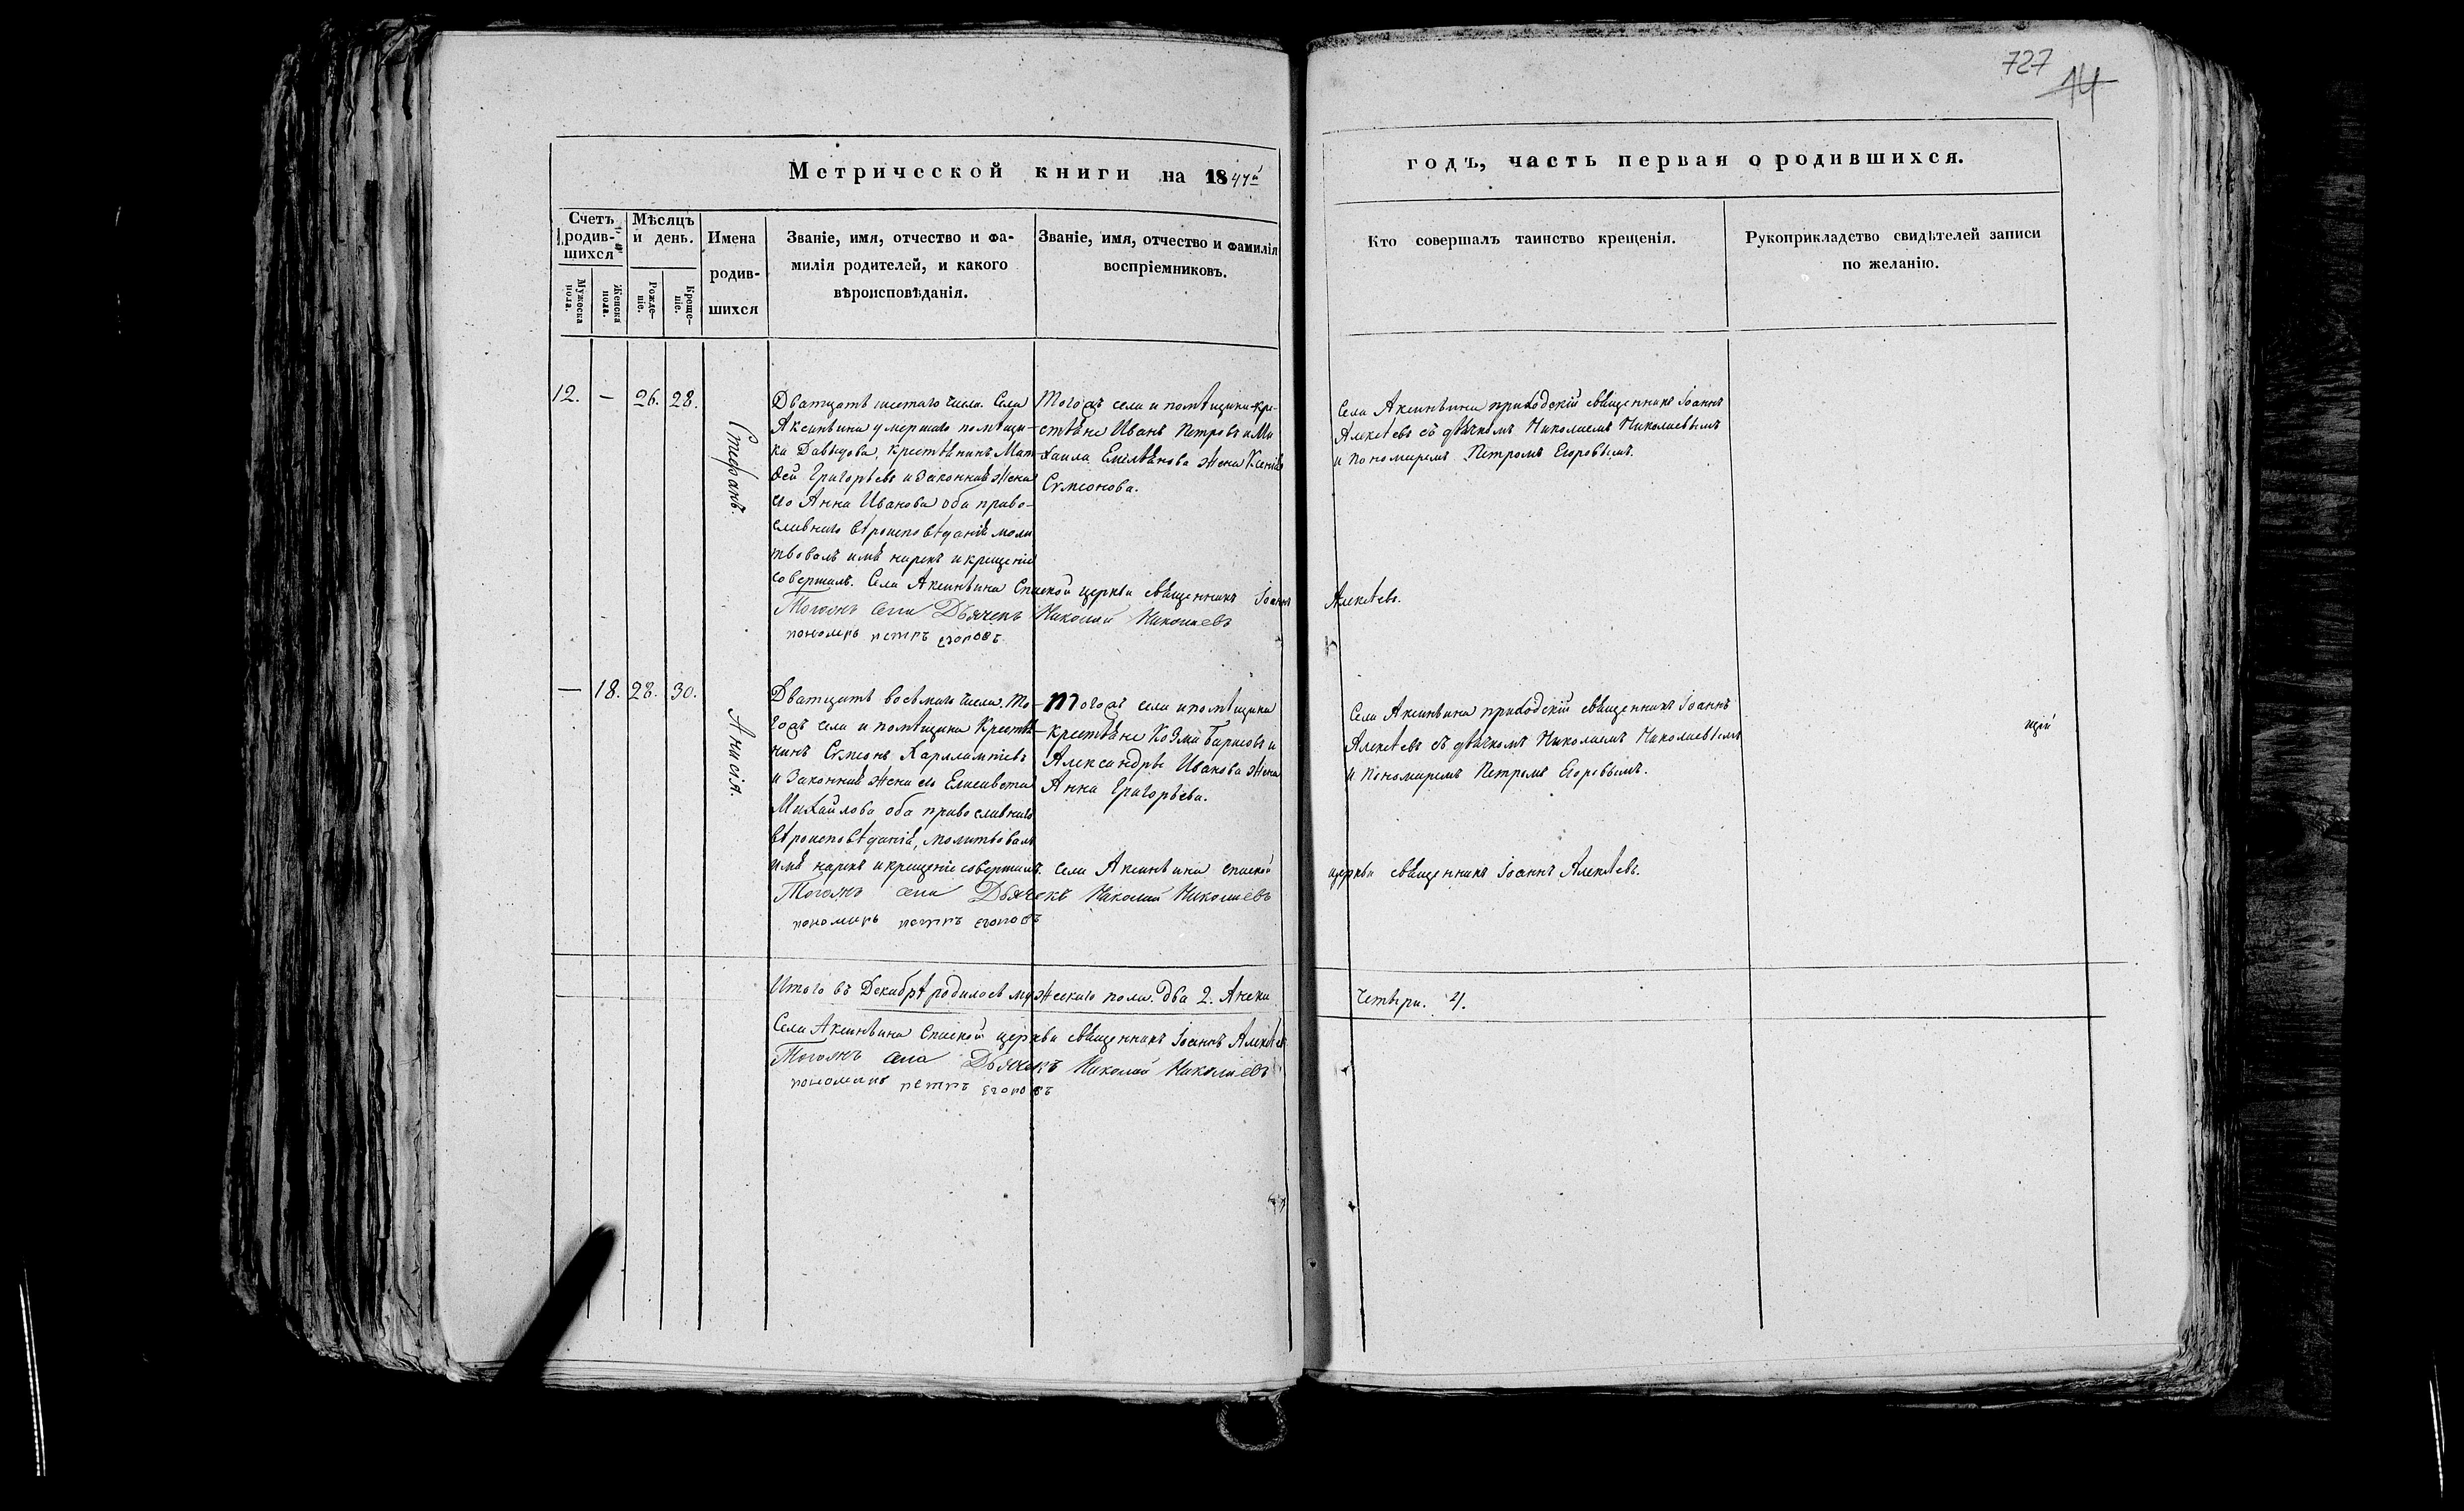 727
14
Метрической книги на 1847й
годъ, часть первая о родившихся.
Счетъ родив-шихся
Мужеска пола.
Женска пола.
Мѣсяцъ и день.
Рожде-ніе.
Креще-ніе.
Имена
родив-
шихся
Званіе, имя, отчество и фа-
милія родителей, и какого
вѣроисповѣданія.
Званіе, имя, отчество и фамилія
воспріемниковъ.
Кто совершалъ таинство крещенія.
Рукоприкладство свидѣтелей записи
по желанію.
12. — 26. 28.
Стефанъ.
Дватцать шестаго числа. Села
Аксиньина умершаго помѣщи-
ка Давыдова, крестьянинъ Мат-
ѳей Григорьевъ и законная жена
его Анна Иванова оба право-
славнаго вѣроисповѣданія моли
твовалъ имя нарекъ и крещеніе
совершалъ. Села Аксиньина Спаской церкви священникъ Іоаннъ Алекѣевъ.
Тогожъ села Дьячекъ Николай Николаевъ
пономарь петръ егоровъ
Тогожъ села и помѣщика кре-
стьяне Иванъ Петровъ и Ми
хаила Емельянова жена Ксенія
Сумеонова.
Села Аксиньина приходскій священникъ Іоаннъ
Алекѣевъ съ дьячкомъ Николаемъ Николаевымъ
и пономаремъ Петромъ Егоровымъ.
— 18. 28. 30.
Анисія.
Дватцать восьмаго числа. То-
гожъ села и помѣщика Крестья-
нинъ Сумеонъ Харлампіевъ
и законная жена его Елисавета
Михайлова оба православнаго
вѣроисповѣданія, молитвовалъ
имя нарекъ и крещеніе совершалъ. Села Аксиньина спаской церкви священникъ Іоаннъ Алекѣевъ.
Тогожъ села Дьячекъ Николай Николаевъ
пономарь петръ егоровъ
Тогожъ села и помѣщика
крестьяне Козма Борисовъ и
Александры Иванова жена
Анна Григорьева.
Села Аксиньина приходскій священникъ Іоаннъ
Алекѣевъ съ дьячкомъ Николаемъ Николаевымъ
и пономаремъ Петромъ Егоровымъ.
щій
Итого въ Декабрѣ родилось мужескаго пола. два 2. Женска четыри. 4.
Села Аксиньина Спаской церкви священникъ Іоаннъ Алекѣевъ
Тогожъ села Дьячекъ Николай Николаевъ
пономарь петръ егоровъ